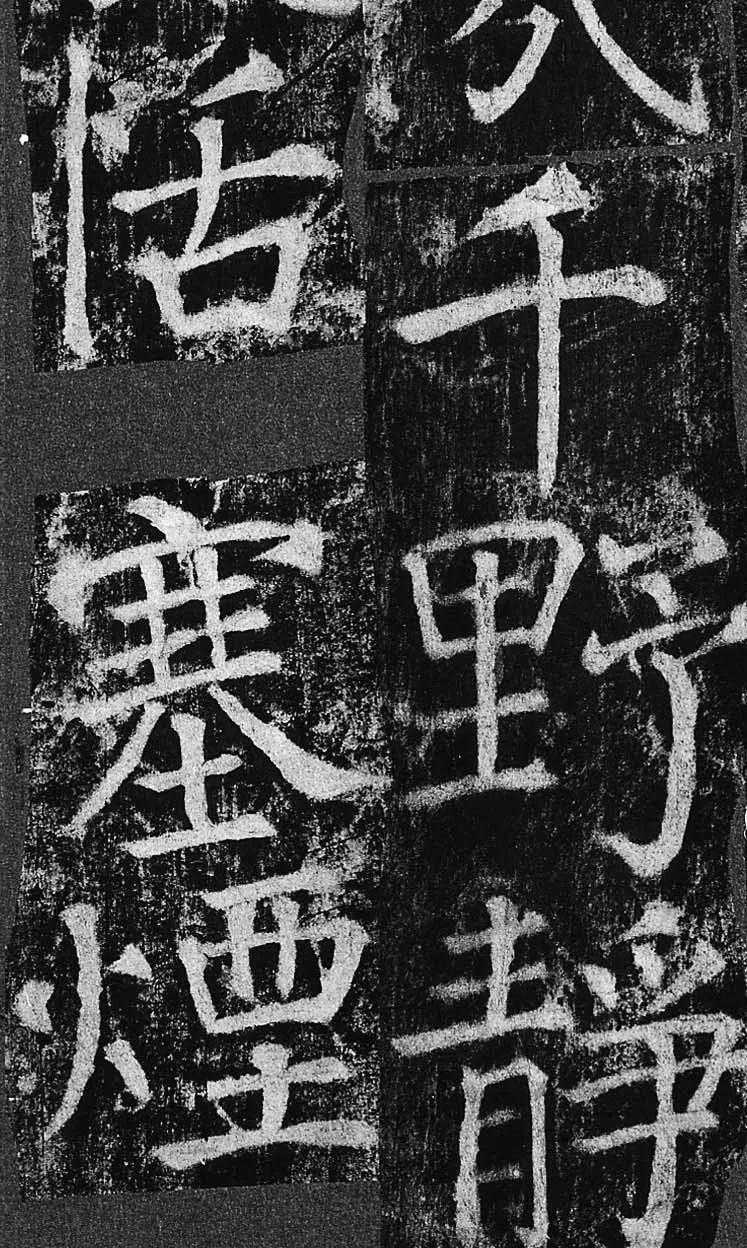 千野靜
恬塞煙